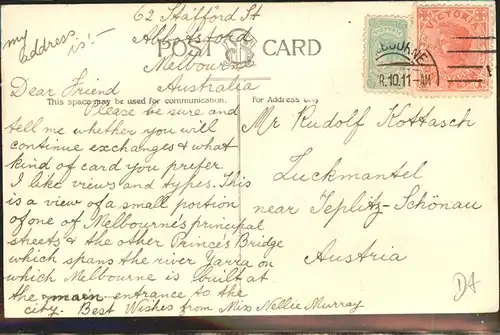 my address is :-
62 Stafford St
Abbotsford
Melbourne
Australia
POST CARD
Dear Friend
This space may be used for communication.
For Address Only
Please be sure and
tell me whether you will
continue exchanges & what
kind of card you prefer.
I like views and types. This
is a view of a small portion
of one of Melbourne's principal
streets & the other Prince's Bridge
which spans the river Yarra on
which Melbourne is built at
the main entrance to the
city. Best Wishes from Miss Nellie Murray
VICTORIA
VICTORIA
BOURNE
R.10.11-AM
1
Mr Rudolf Kottasch
Luckmantel
near Teplitz-Schönau
Austria
D4